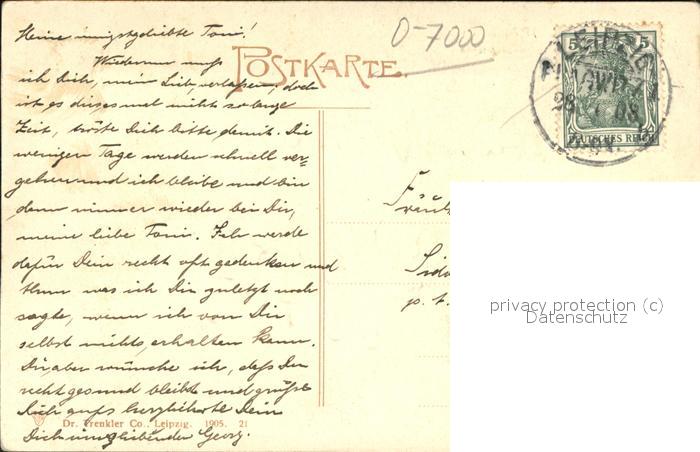 Meine innigstgeliebte Toni!
Wiederum muss
ich Dich, mein Lieb, verlassen, doch
ist es diesesmal nicht so lange
Zeit, tröste Dich bitte damit. Die
wenigen Tage werden schnell ver-
gehen und ich bleibe und bin
dann immer wieder bei Dir,
meine liebe Toni. Ich werde
dafür Dein recht oft gedenken und
thun was ich Dir zuletzt noch
sagte, wenn ich von Dir
selbst nichts erhalten kann.
Dir aber wünsche ich, daß Du
recht gesund bleibst und grüße
Dich aufs herzlichste Dein
Dich innigliebender Georg.
POSTKARTE.
0-7000
5 5
LEIPZIG
28 08
DEUTSCHES REICH
Fräul
p. t.
privacy protection (c)
Datenschutz
Dr. Trenkler Co., Leipzig. 1905. 21